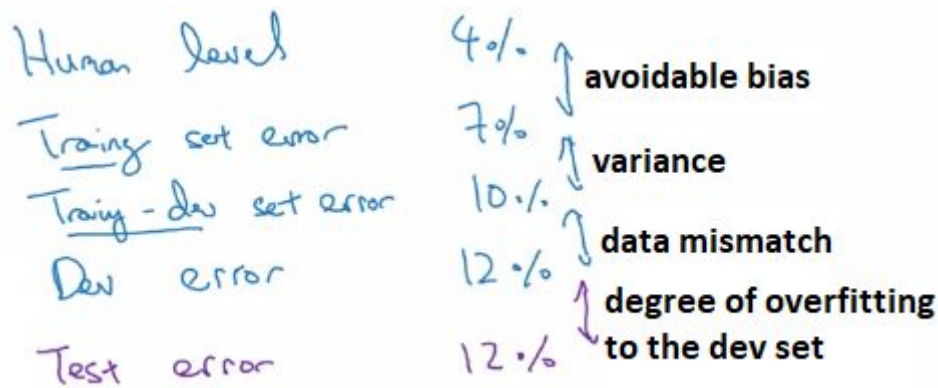 Human level 4%
avoidable bias
Training set error 7%
variance
Training-dev set error 10%
data mismatch
Dev error 12%
degree of overfitting
to the dev set
Test error 12%